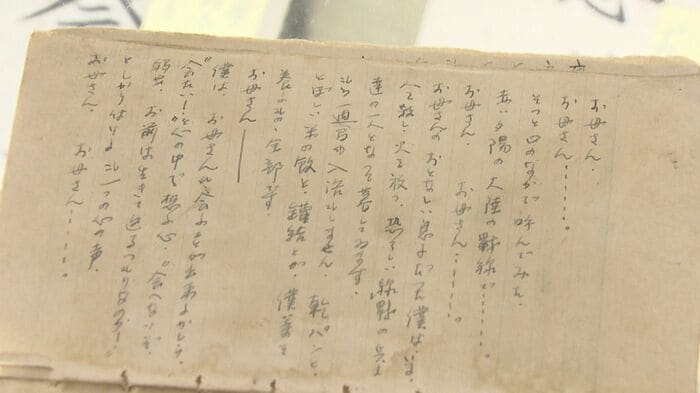 お母さん、
お母さん……。
そっと口のなかで呼んでみた、
赤い夕陽の大陸の戰線で……
お母さん、お母さん……。
お母さんのおとなしい息子だった僕はいま、
人を殺し、火を放つ、恐ろしい線戰の兵士
達の一人となって暮してゐます。
もう一週間も入浴もしません、乾パンと、
乏しい米の飯と、罐詰とが、僕達を
養ふもの全部です。
お母さん———
僕は、お母さんに会ふことが出来るだらうか。
"会たい!"と心の中で想ふ心、"会へないぞ、
弱虫、お前は生きて還るつもりなのか!"
としかり付けるもう一つの心の声、
お母さん、お母さん……。